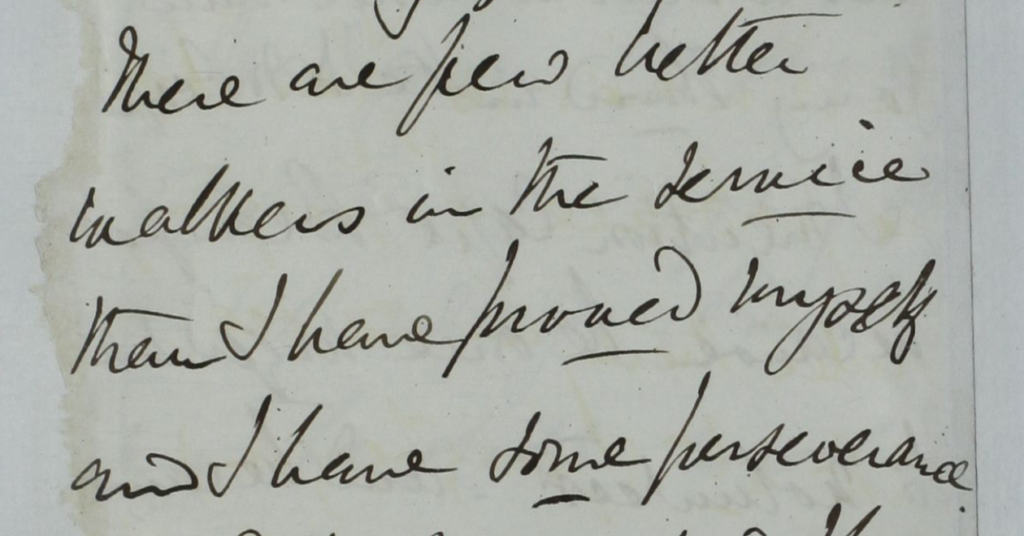 There are few better
walkers in the service
than I have proved myself
and I have some perseverance